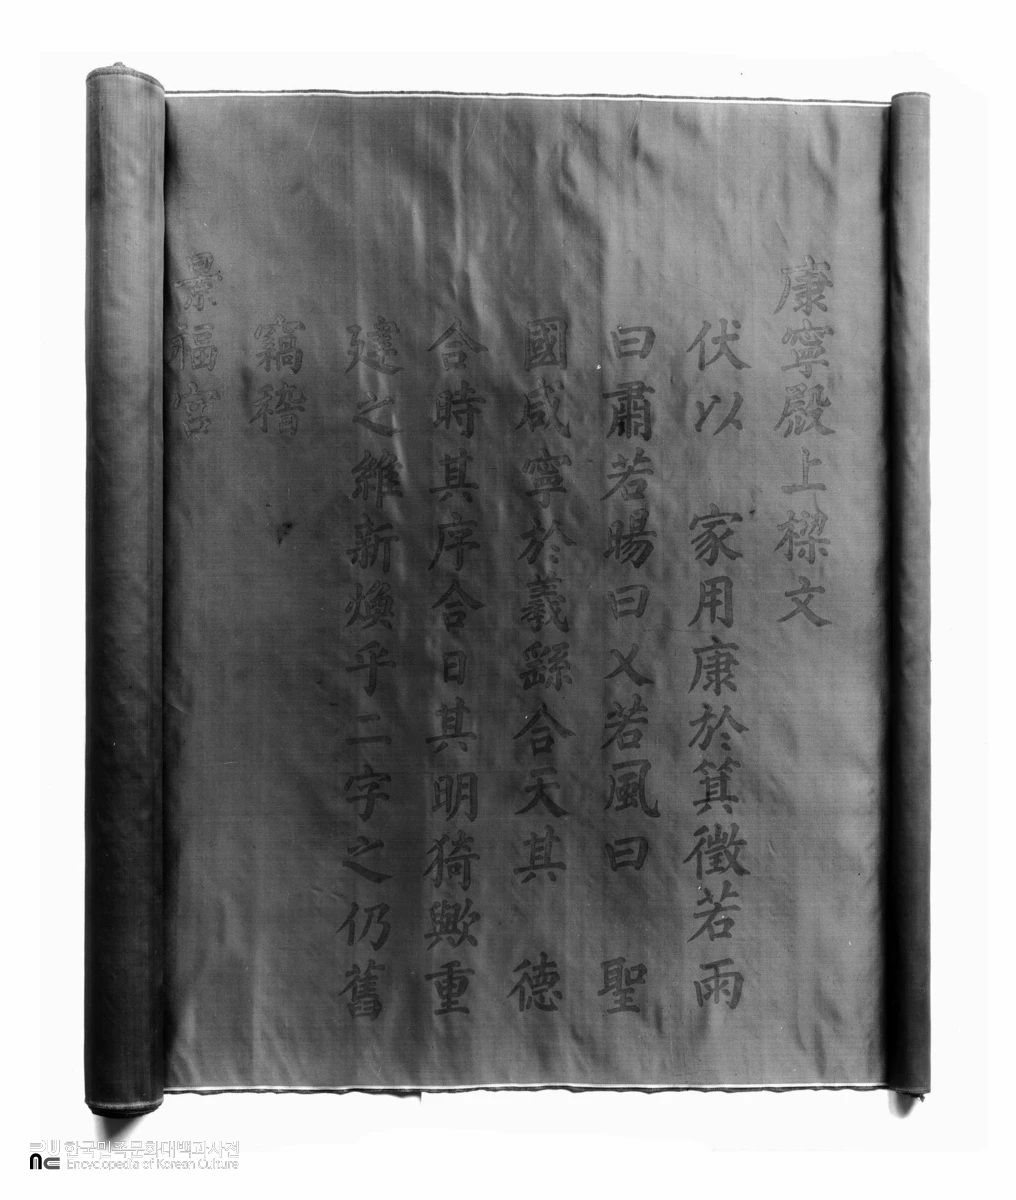 康寧殿上樑文
伏以 家用康於箕徵若雨
曰肅若暘曰乂若風曰 聖
國咸寧於羲繇合天其 德
合時其序合日其明猗歟重
建之維新煥乎二字之仍舊
竊稽
景福宮
한국민족문화대백과사전
Encyclopedia of Korean Culture